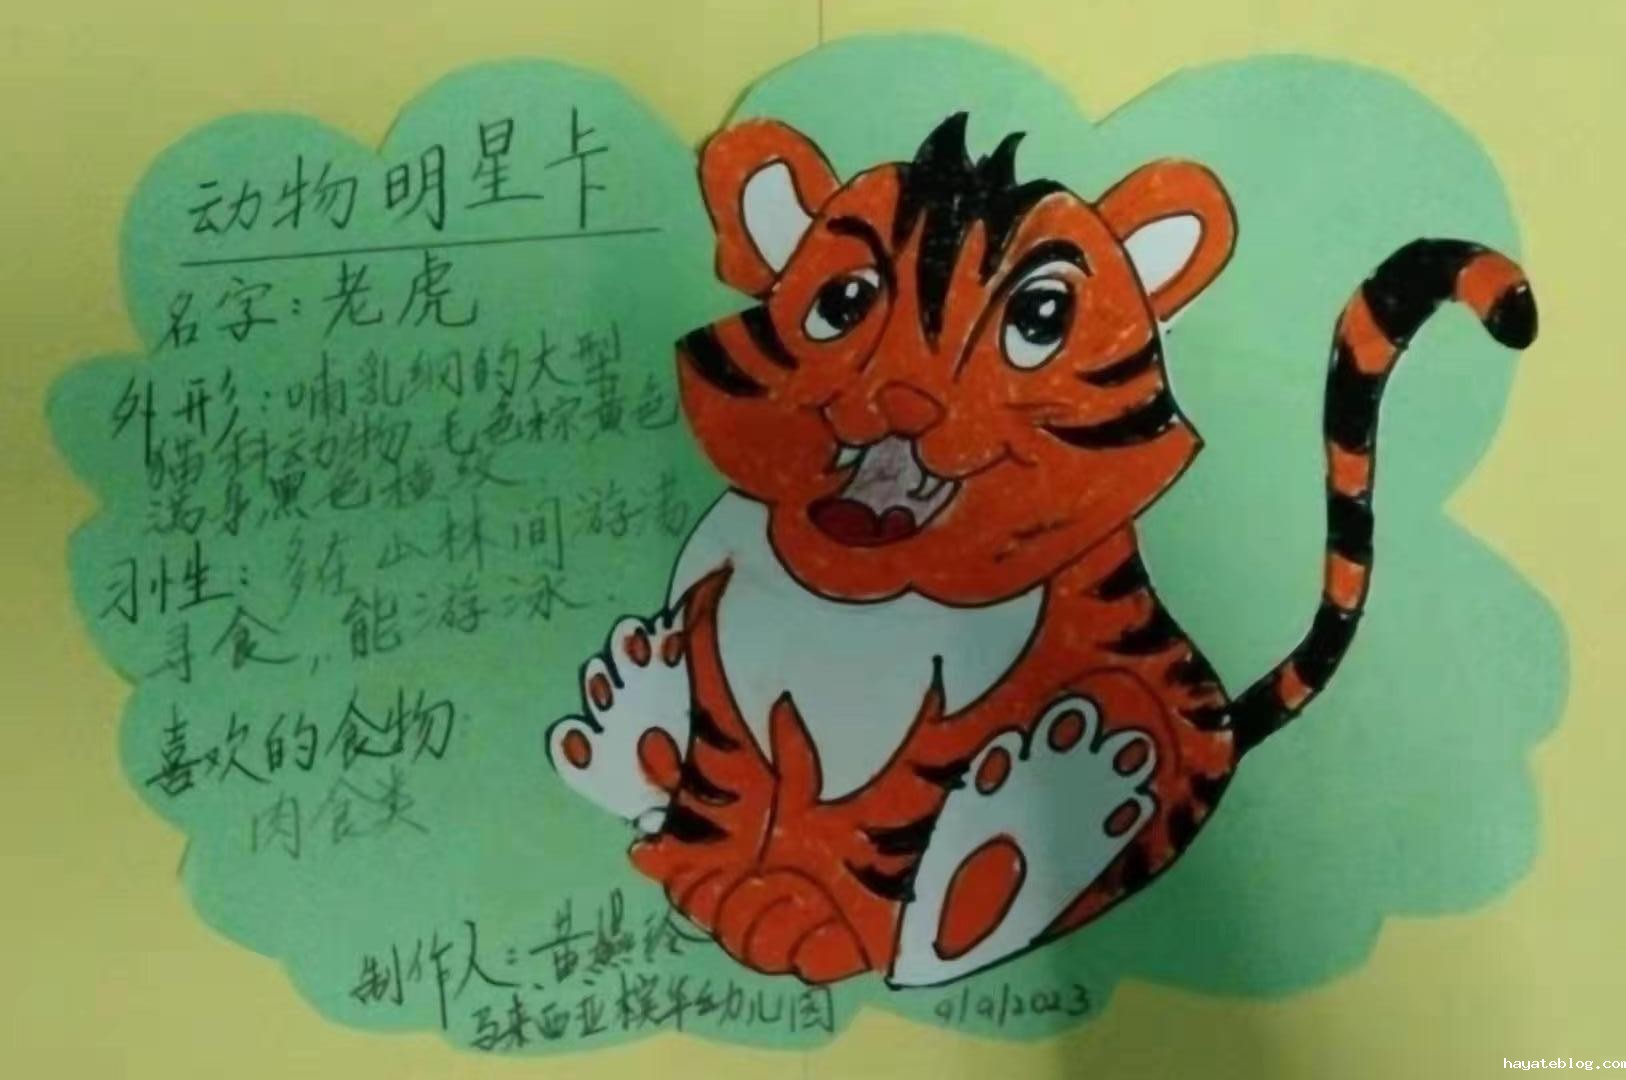 动物明星卡
名字：老虎
外形：哺乳纲的大型
猫科动物，毛色棕黄色
满身黑色横纹
习性：多在山林间游
寻食，能游泳.
喜欢的食物
肉食类
制作人：黄燕玲
马来西亚槟华幼儿园
9/9/2023
hayateblog.com